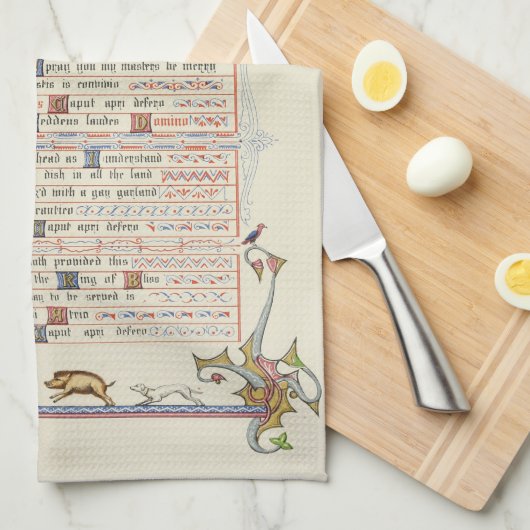 pray you my masters be merry
stis in convivio
Caput apri defero
Reddens laudes Domino
head as I understand
dish in all the land
d with a gay garland
cantico
Caput apri defero
ath provided this
the King of Bliss
ay to be served is
Atrio
Caput apri defero